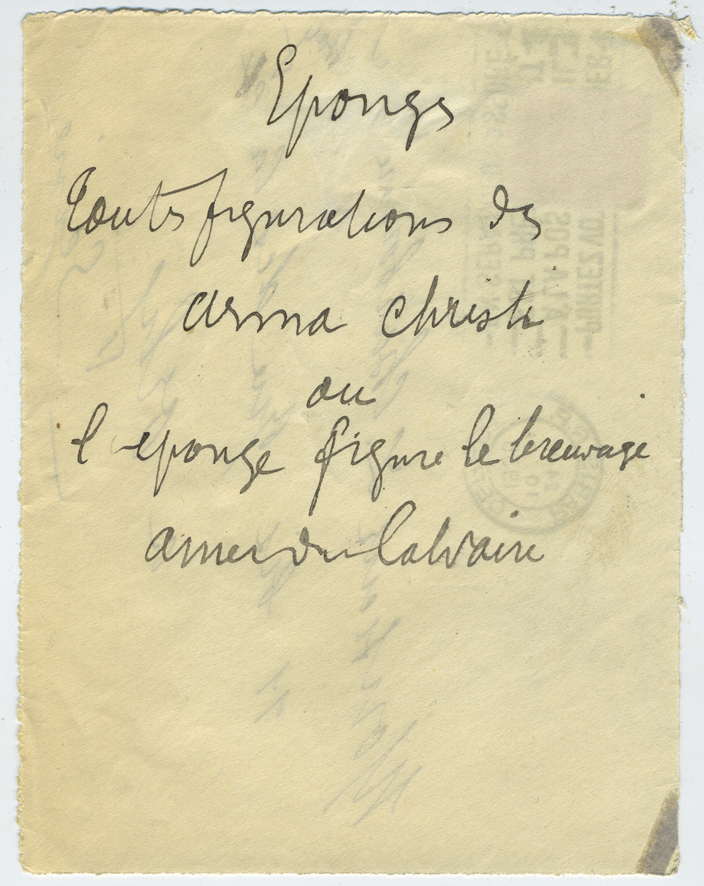 Eponges
Toutes figurations des
arma christi
ou
l'eponge figure le breuvage
amer du Calvaire